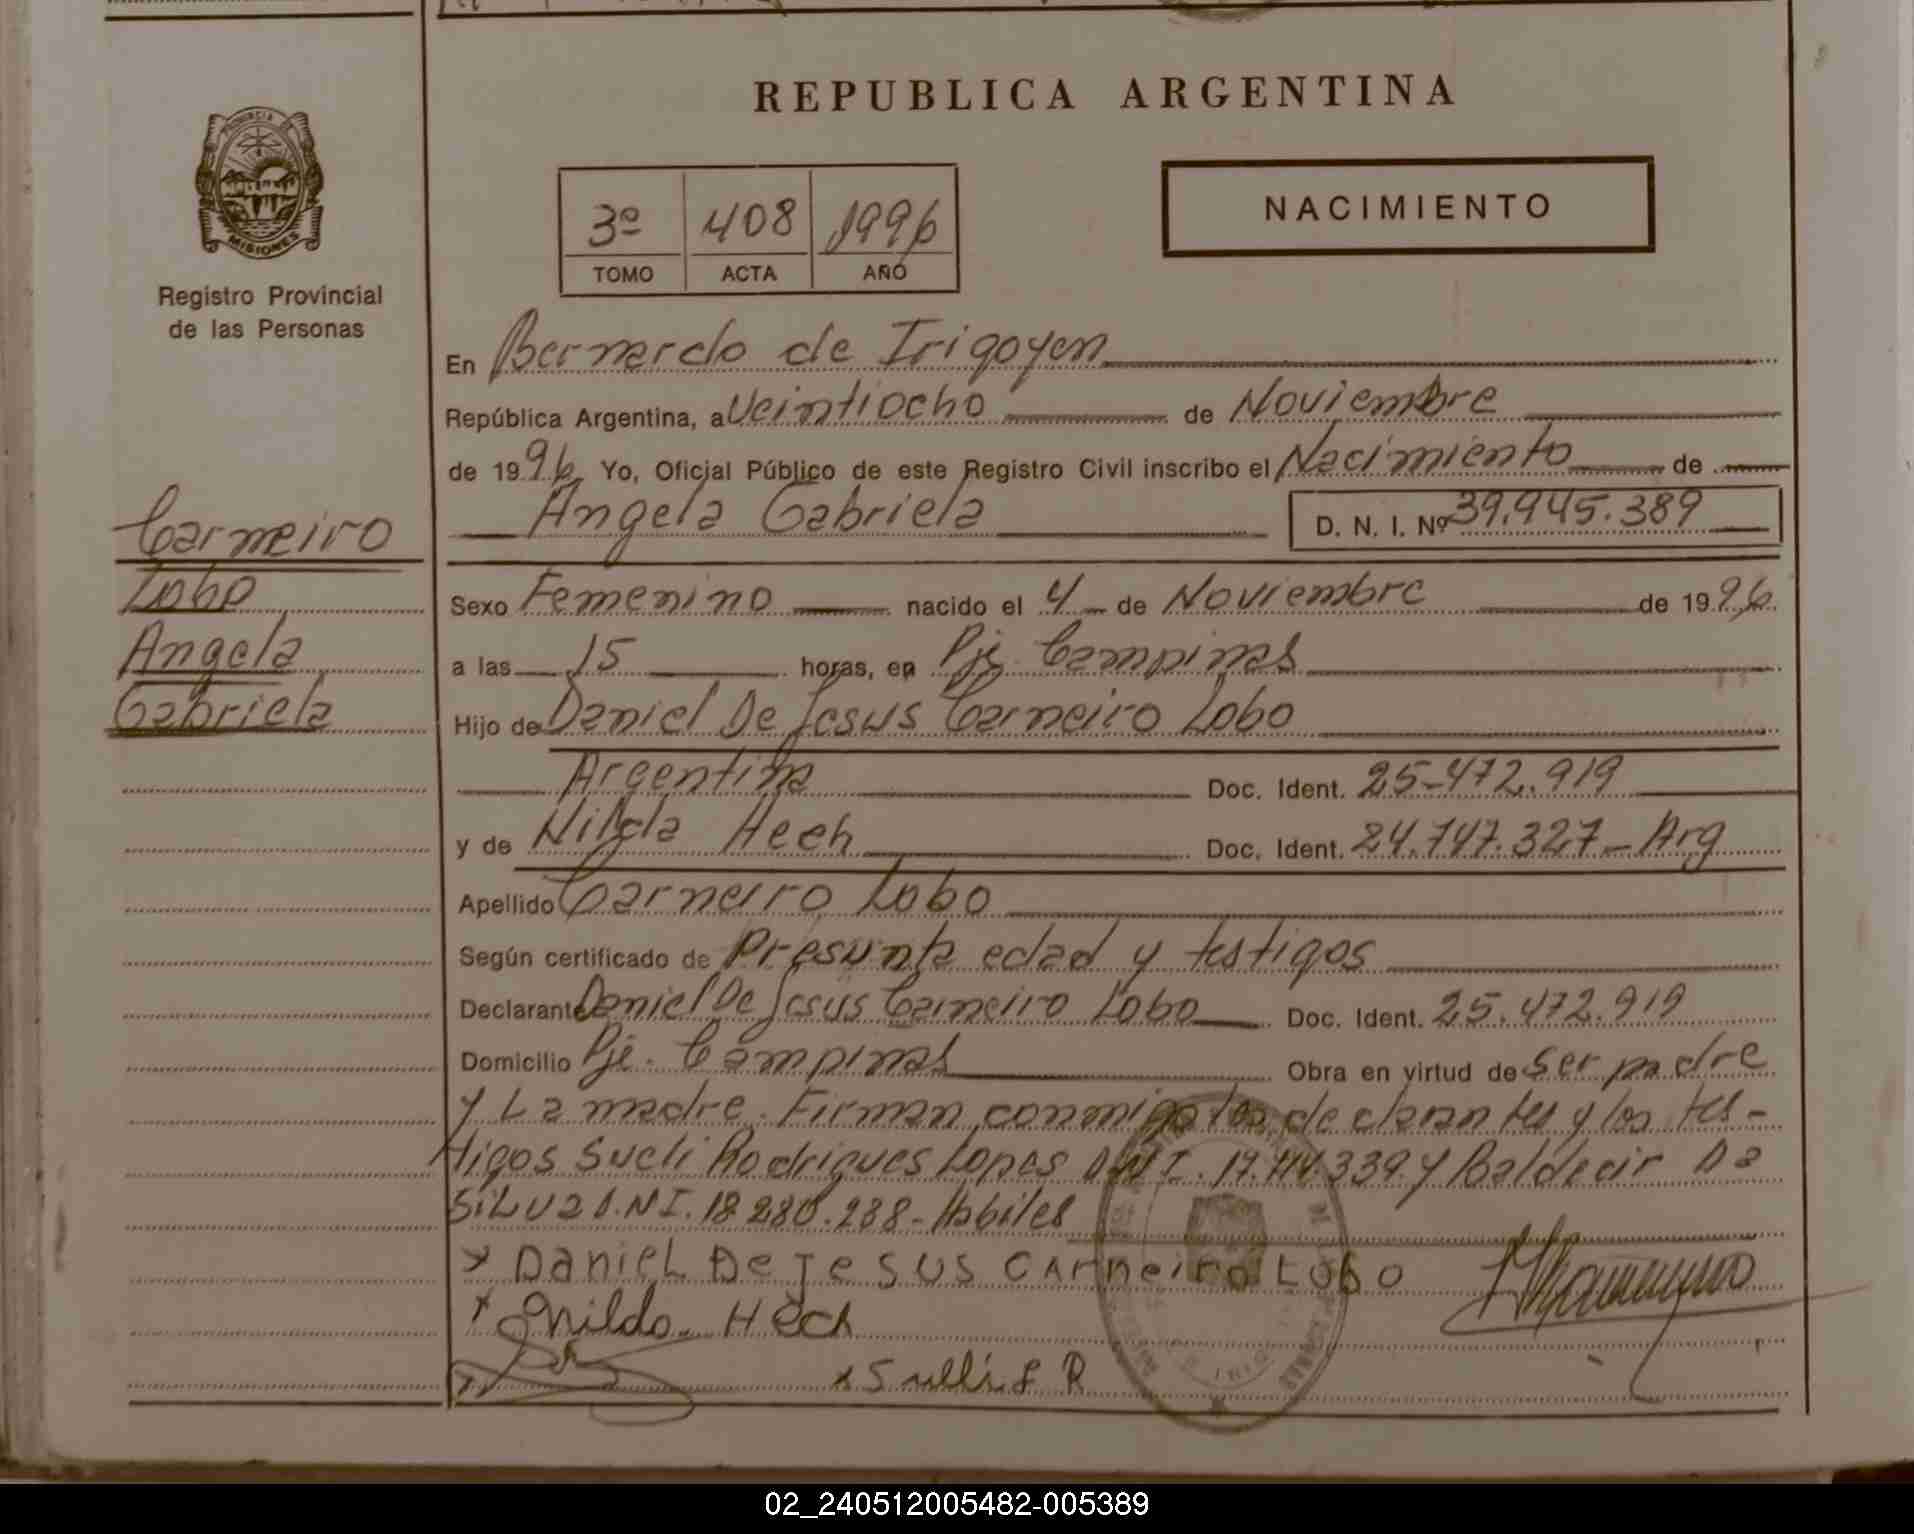 REPUBLICA ARGENTINA
PROVINCIA DE
MISIONES
Registro Provincial
de las Personas
3º 408 1996
TOMO ACTA AÑO
NACIMIENTO
Carneiro
Lobo
Angela
Gabriela
En Bernardo de Irigoyen
República Argentina, a Veintiocho de Noviembre
de 1996 Yo, Oficial Público de este Registro Civil inscribo el Nacimiento de
Angela Gabriela D. N. I. Nº 39.945.389
Sexo Femenino nacido el 4 de Noviembre de 1996
a las 15 horas, en Pje. Campinas
Hijo de Daniel De Jesus Carneiro Lobo
Argentina Doc. Ident. 25-472.919
y de Nilda Hech Doc. Ident. 24.747.327 - Arg
Apellido Carneiro Lobo
Según certificado de Presunta edad y testigos
Declarante Daniel De Jesus Carneiro Lobo Doc. Ident. 25.472.919
Domicilio Pje. Campinas Obra en virtud de ser padre
y La madre. Firman conmigo los declarantes y los tes-
tigos Sueli Rodrigues Lopes D.N.I. y Baldecir Da
Silva D.N.I. 18.280.288 - Habiles
x Daniel De Jesus Carneiro Lobo
x Nilda Hech
02_240512005482-005389